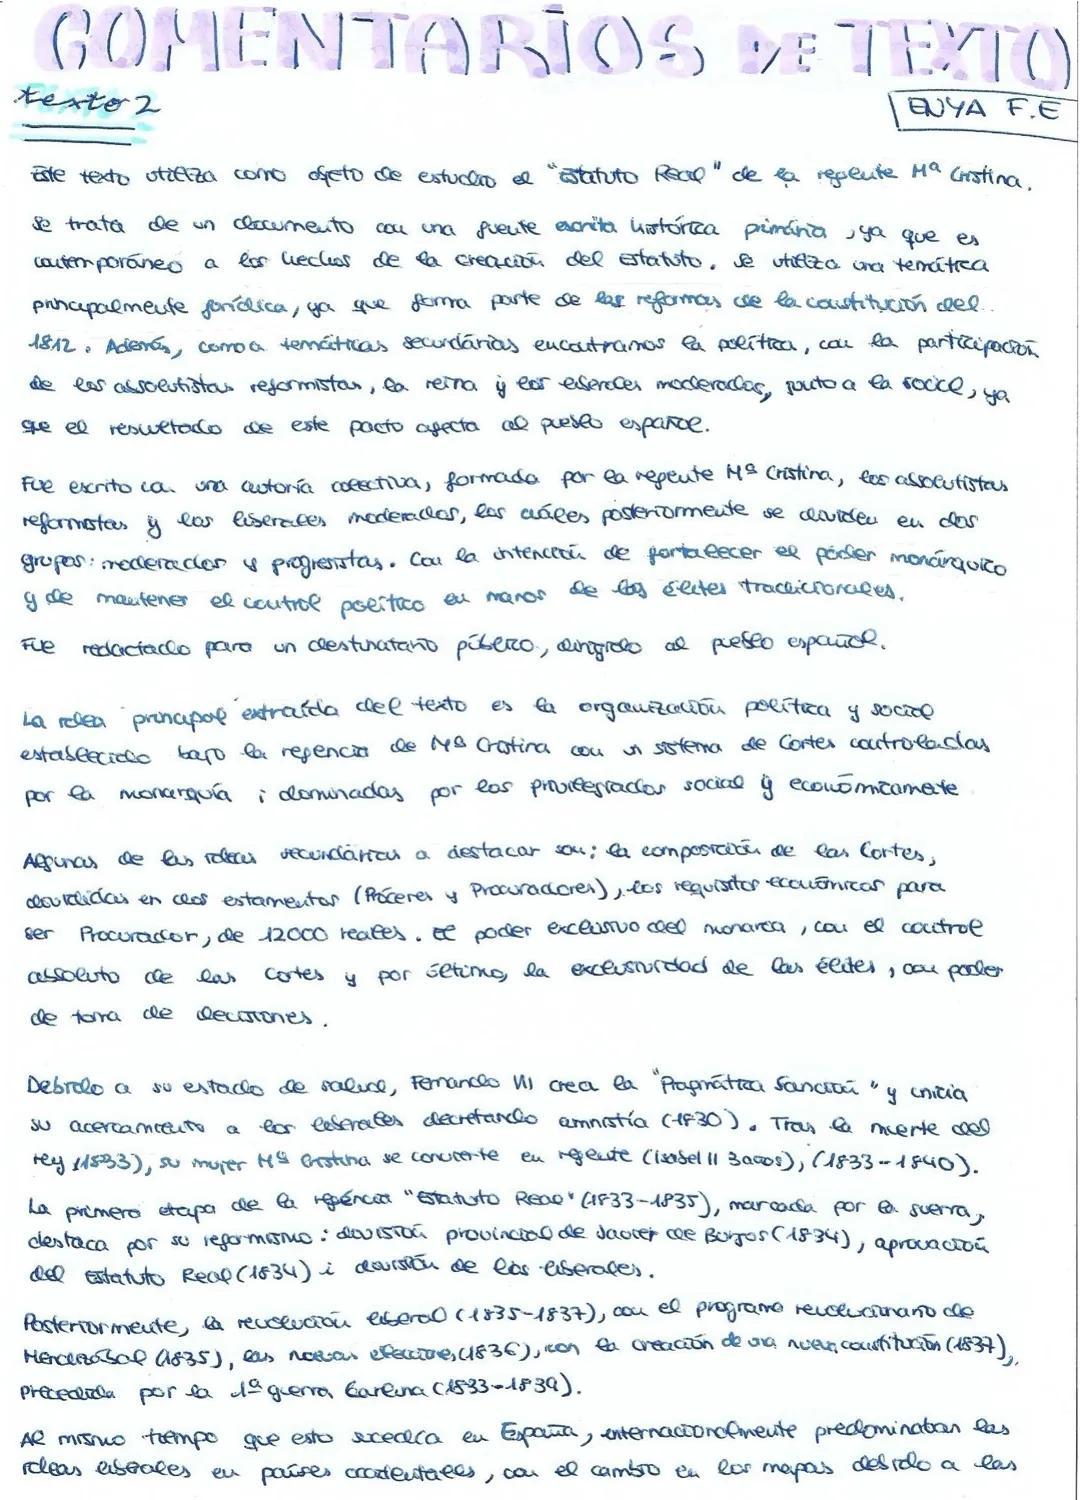 COMENTARIOS DE TEXTO
texto 2
ENYA F.E
Este texto utiliza como objeto de estudio el "Estatuto Real" de la regente Mª Cristina.
Se trata de un documento con una fuente escrita histórica primária, ya que es
contemporáneo a los hechos de la creación del estatuto. Se utiliza una temática
principalmente jurídica, ya que forma parte de las reformas de la constitución del
1812. Además, como a temáticas secundárias encontramos la política, con la participación
de los absolutistas reformistas, la reina y los liberales moderados, junto a la social, ya
que el resultado de este pacto afecta al pueblo español.
Fue escrito con una autoría colectiva, formada por la regente Mª Cristina, los absolutistas
reformistas y los liberales moderados, los cuáles posteriormente se dividen en dos
grupos: moderados y progresistas. Con la intención de fortalecer el poder monárquico
y de mantener el control político en manos de las élites tradicionales.
Fue redactado para un destinatario público, dirigido al pueblo español.
La idea principal extraída del texto es la organización política y social
establecido bajo la regencia de Mª Cristina con un sistema de Cortes controladas
por la monarquía i dominadas por los privilegiados social y económicamente
Algunas de las ideas secundárias a destacar son: la composición de las Cortes,
divididas en dos estamentos (Próceres y Procuradores), los requisitos económicos para
ser Procurador, de 12000 reales. El poder exclusivo del monarca, con el control
absoluto de las Cortes y por último, la exclusividad de las élites, con poder
de toma de decisiones.
Debido a su estado de salud, Fernando VII crea la "Pragmática Sanción" y inicia
su acercamiento a los liberales decretando amnistía (1830). Tras la muerte del
rey (1833), su mujer Mª Cristina se convierte en regente (Isabel II 3 años), (1833-1840).
La primera etapa de la regéncia "Estatuto Real" (1833-1835), marcada por la guerra,
destaca por su reformismo: división provincial de Javier de Burgos (1834), aprovación
del Estatuto Real (1834) i división de los liberales.
Posteriormente, la revolución liberal (1835-1837), con el programa revolucionario de
Mendizábal (1835), las nuevas elecciones (1836), con la creación de una nueva constitución (1837),
Precedida por la 1ª guerra Carlina (1833-1839).
Al mismo tiempo que esto sucedía en España, internacionalmente predominaban las
ideas liberales en países occidentales, con el cambio en los mapas debido a las